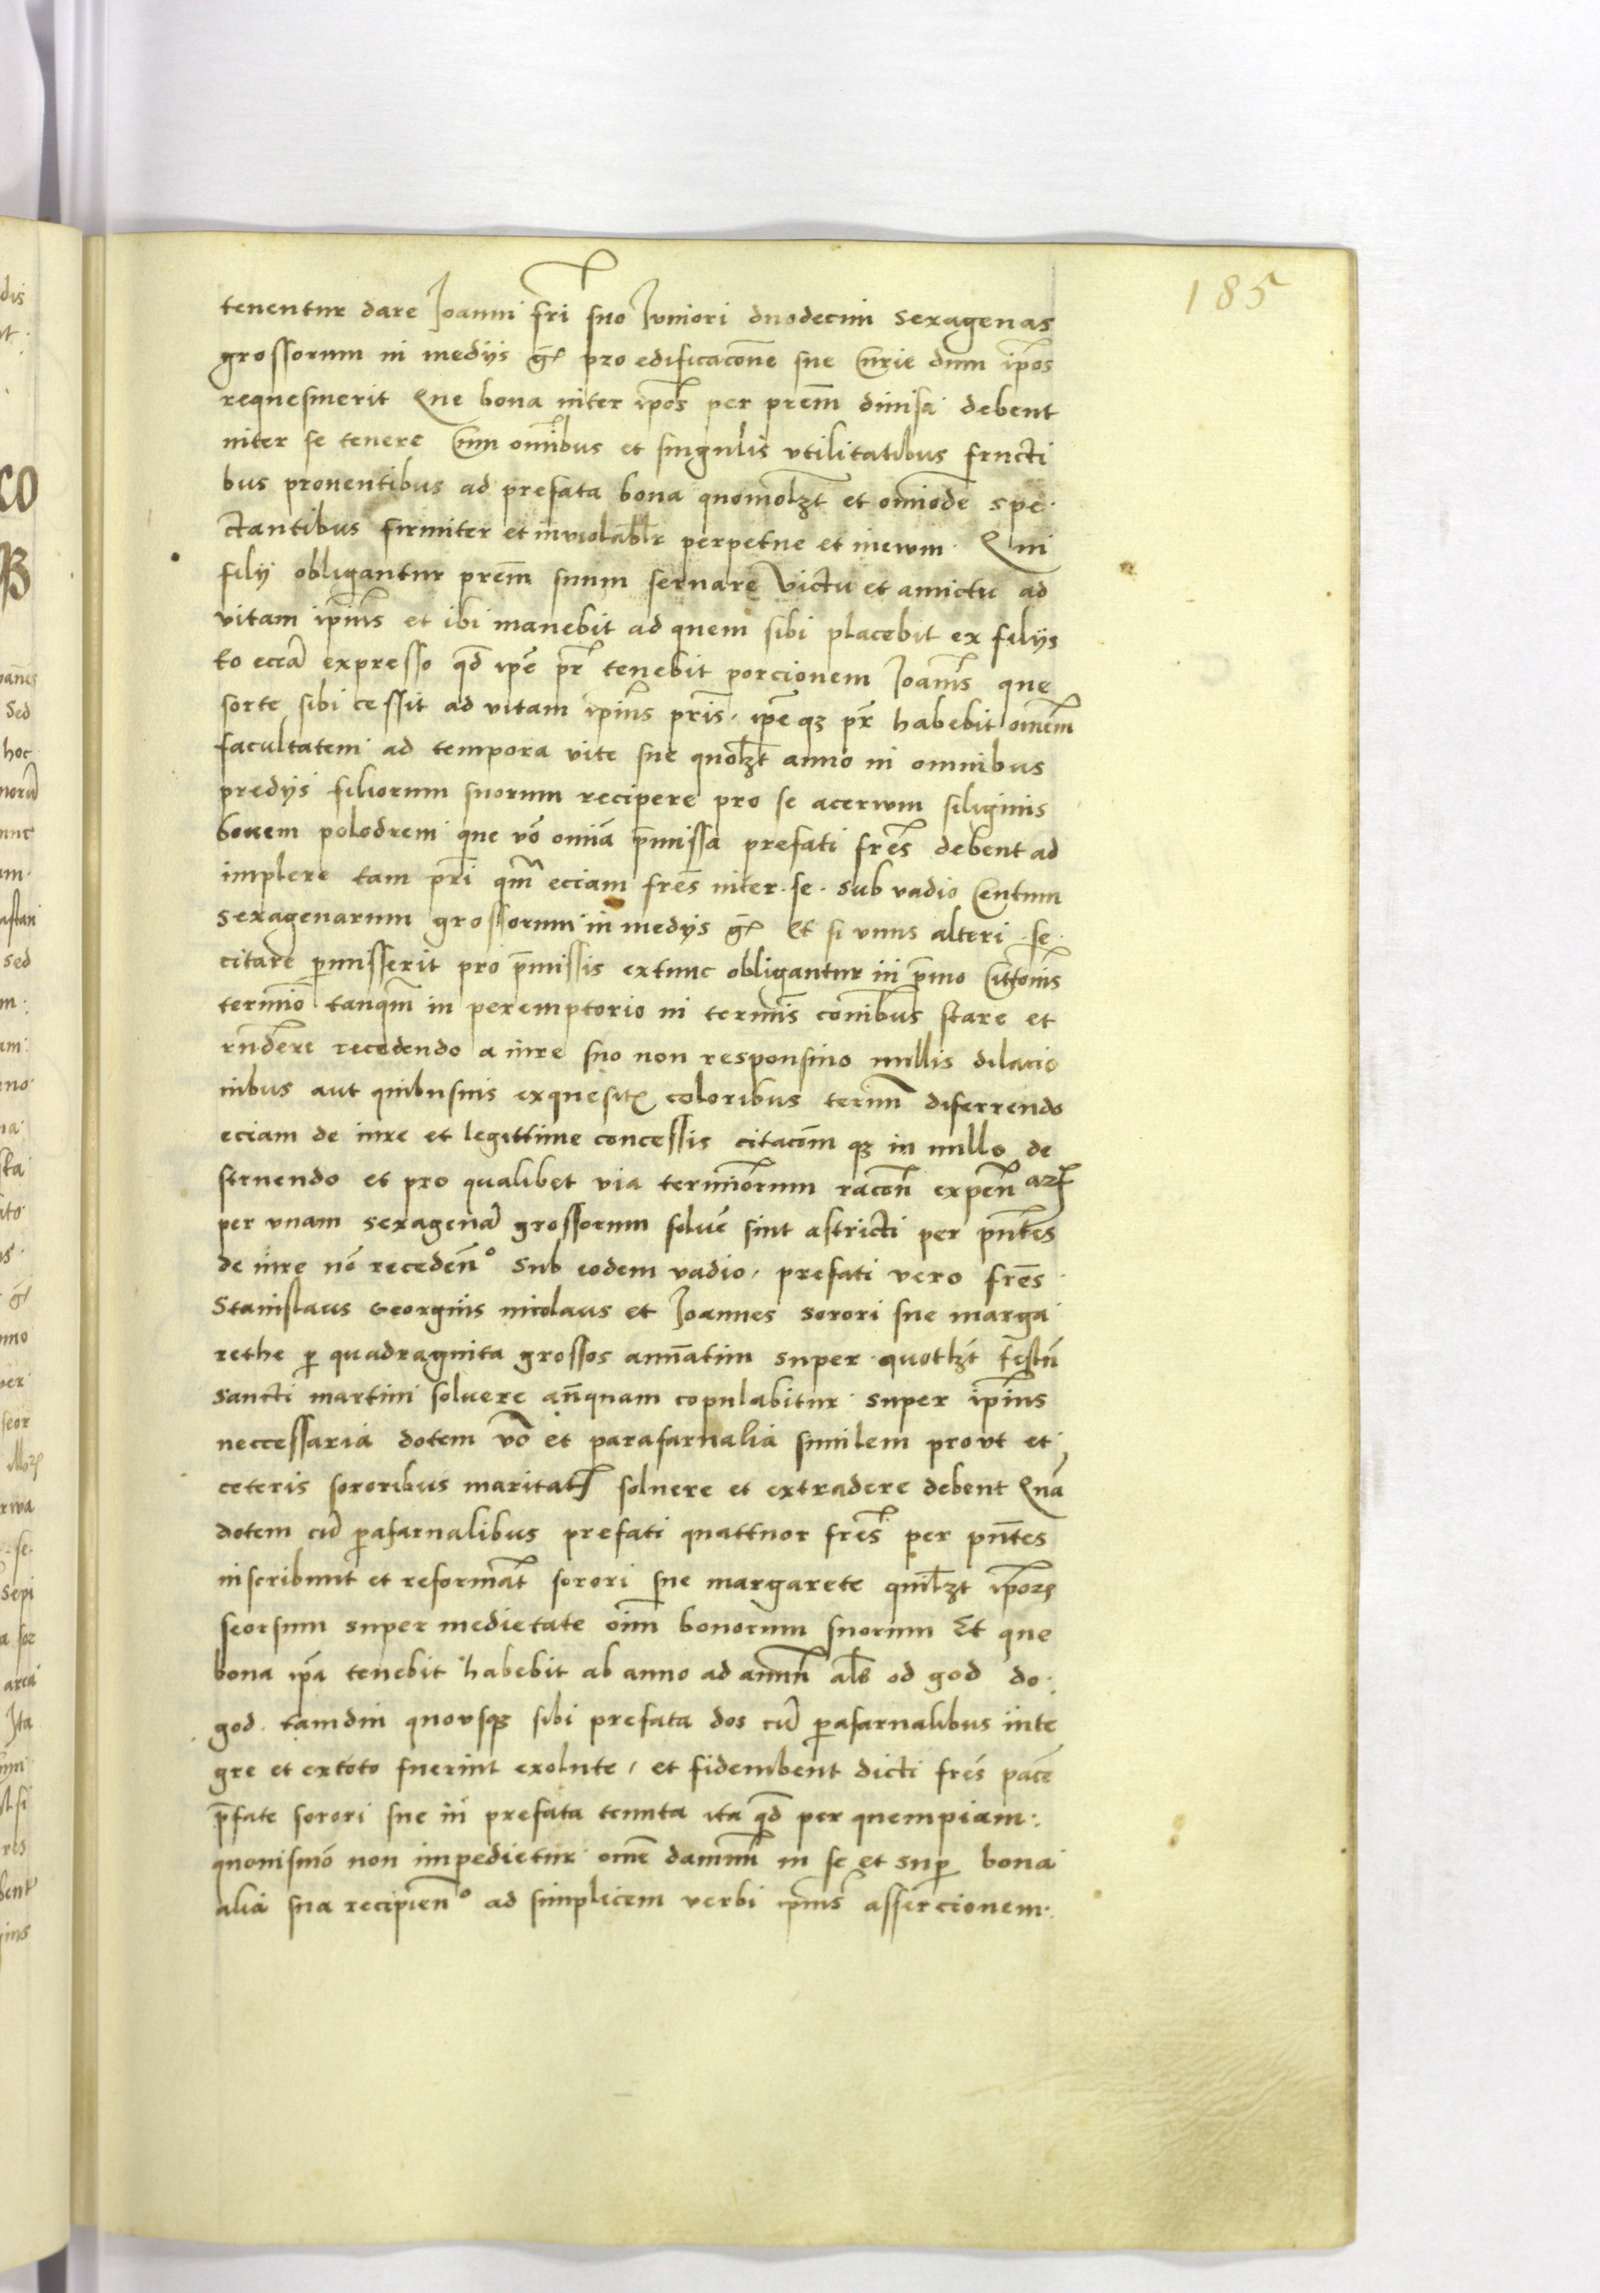 185
tenentur dare Joanni fri̅ suo Juniori duodecim sexagenas
grossorum in medijs g̅ pro edificaco̅ne sue Curie dum ip̅os
requesiuerit Que bona inter ip̅os per pr̅em diuisa debent
inter se tenere Cum om̅ibus et singulis vtilitatibus fructi
bus prouentibus ad prefata bona quomolꝫt et omi̅ode spe
ctantibus firmiter et inviolabl̅r perpetue et in ewm Qui
filij obligantur pr̅em suum seruare victu et amictu ad
vitam ip̅ius et ibi manebit ad quem sibi placebit ex filijs
to ecia̅ expresso qd̅ ip̅e pr̅ tenebit porcionem Joan̅is que
sorte sibi cessit ad vitam ip̅ius pr̅is, ip̅e qꝫ pr̅ habebit om̅em
facultatem ad tempora vite sue quolꝫt anno in omnibus
predijs filiorum suorum recipere pro se acerwm siliginis
bouem polodrem que vo̅ omi̅a pr̅missa prefati fr̅es debent ad
implere tam pr̅i qm̅ eciam fr̅es inter se sub vadio Centum
sexagenarum grossorum in medijs g̅ Et si vnus alteri se
citare p̅misserit pro p̅missis extunc obligantur in p̅mo Citto̅nis
termi̅o tanqm̅ in peremptorio in termi̅s co̅nibus stare et
rn̅dere recedendo a iure suo non responsiuo nullis dilacio
nibus aut quibusuis exquesit̅ coloribus termi̅ diferrendo
eciam de iure et legittime concessis citaco̅m qꝫ in nullo de
struendo et pro qualibet via termi̅orum raco̅n expen̅ arꝫ
per vnam sexagena̅ grossorum solue̅ sint astricti per pn̅tes
de iure no̅ receden̅° sub eodem vadio, prefati vero fr̅es
Stanislaus Georgius nicolaus et Joannes sorori sue marga
rethe p̅ quadraginta grossos annatim super quotlꝫt festu̅
sancti martini soluere an̅quam copulabitur super ip̅ius
neccessaria dotem vo̅ et parafarnalia similem prout et
ceteris sororibus maritat̅ soluere et extradere debent Qua̅
dotem cu̅ p̅afarnalibus prefati quattuor fr̅es per pn̅tes
inscribunt et reforma̅t sorori sue margarete quilꝫt ip̅orꝫ
seorsum super medietate oim̅ bonorum suorum Et que
bona ip̅a tenebit habebit ab anno ad annu̅ al̅s od god do
god tamdiu quousqꝫ sibi prefata dos cu̅ p̅afarnalibus inte
gre et extoto fuerint exolute, et fidembent dicti fr̅es pace̅
p̅fate sorori sue in prefata tenuta ita qd̅ per quempiam
quouismo̅ non impedietur om̅e damnu̅ in se et sup̅ bona
alia sua recipien̅° ad simplicem verbi ip̅ius assercionem